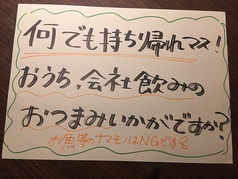 何でも持ち帰れマス!
おうち,会社飲みの
おつまみいかがですか?
お魚等のナマモノはNGです